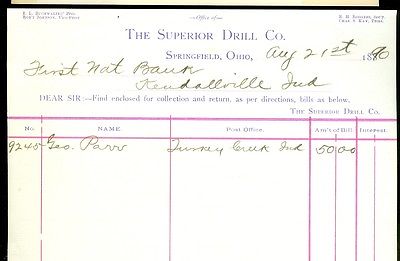 —Office of—
THE SUPERIOR DRILL CO.
SPRINGFIELD, OHIO, Aug 21st 1890
First Nat Bank
Kendallville Ind
DEAR SIR:—Find enclosed for collection and return, as per directions, bills as below,
THE SUPERIOR DRILL CO.
No. NAME. Post Office. Am't of Bill. Interest.
9245 Geo. Parr Turkey Creek Ind 50.00